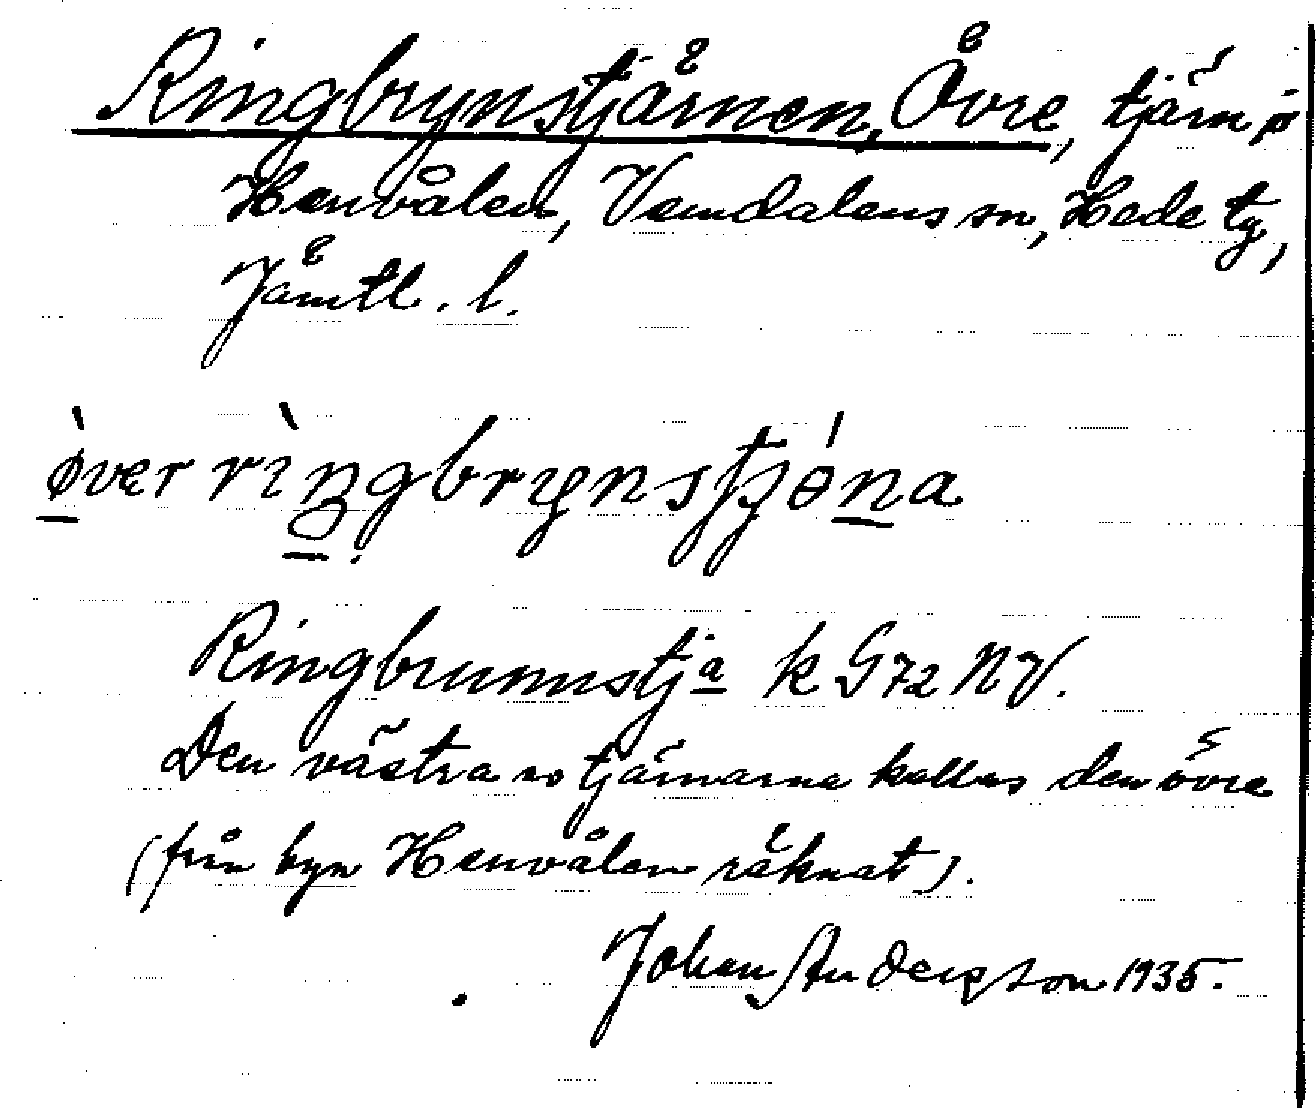 Ringbrynstjärnen, Övre, tjärn på
Henvålen, Vemdalens sn, Hede tg,
Jämtl. l.
ø̀ver rìŋgbrynstjөńa
Ringbrunnstja k G72 NV.
Den västra av tjärnarna kallas den övre
(från byn Henvålen räknat).
Johan Anderson 1935.